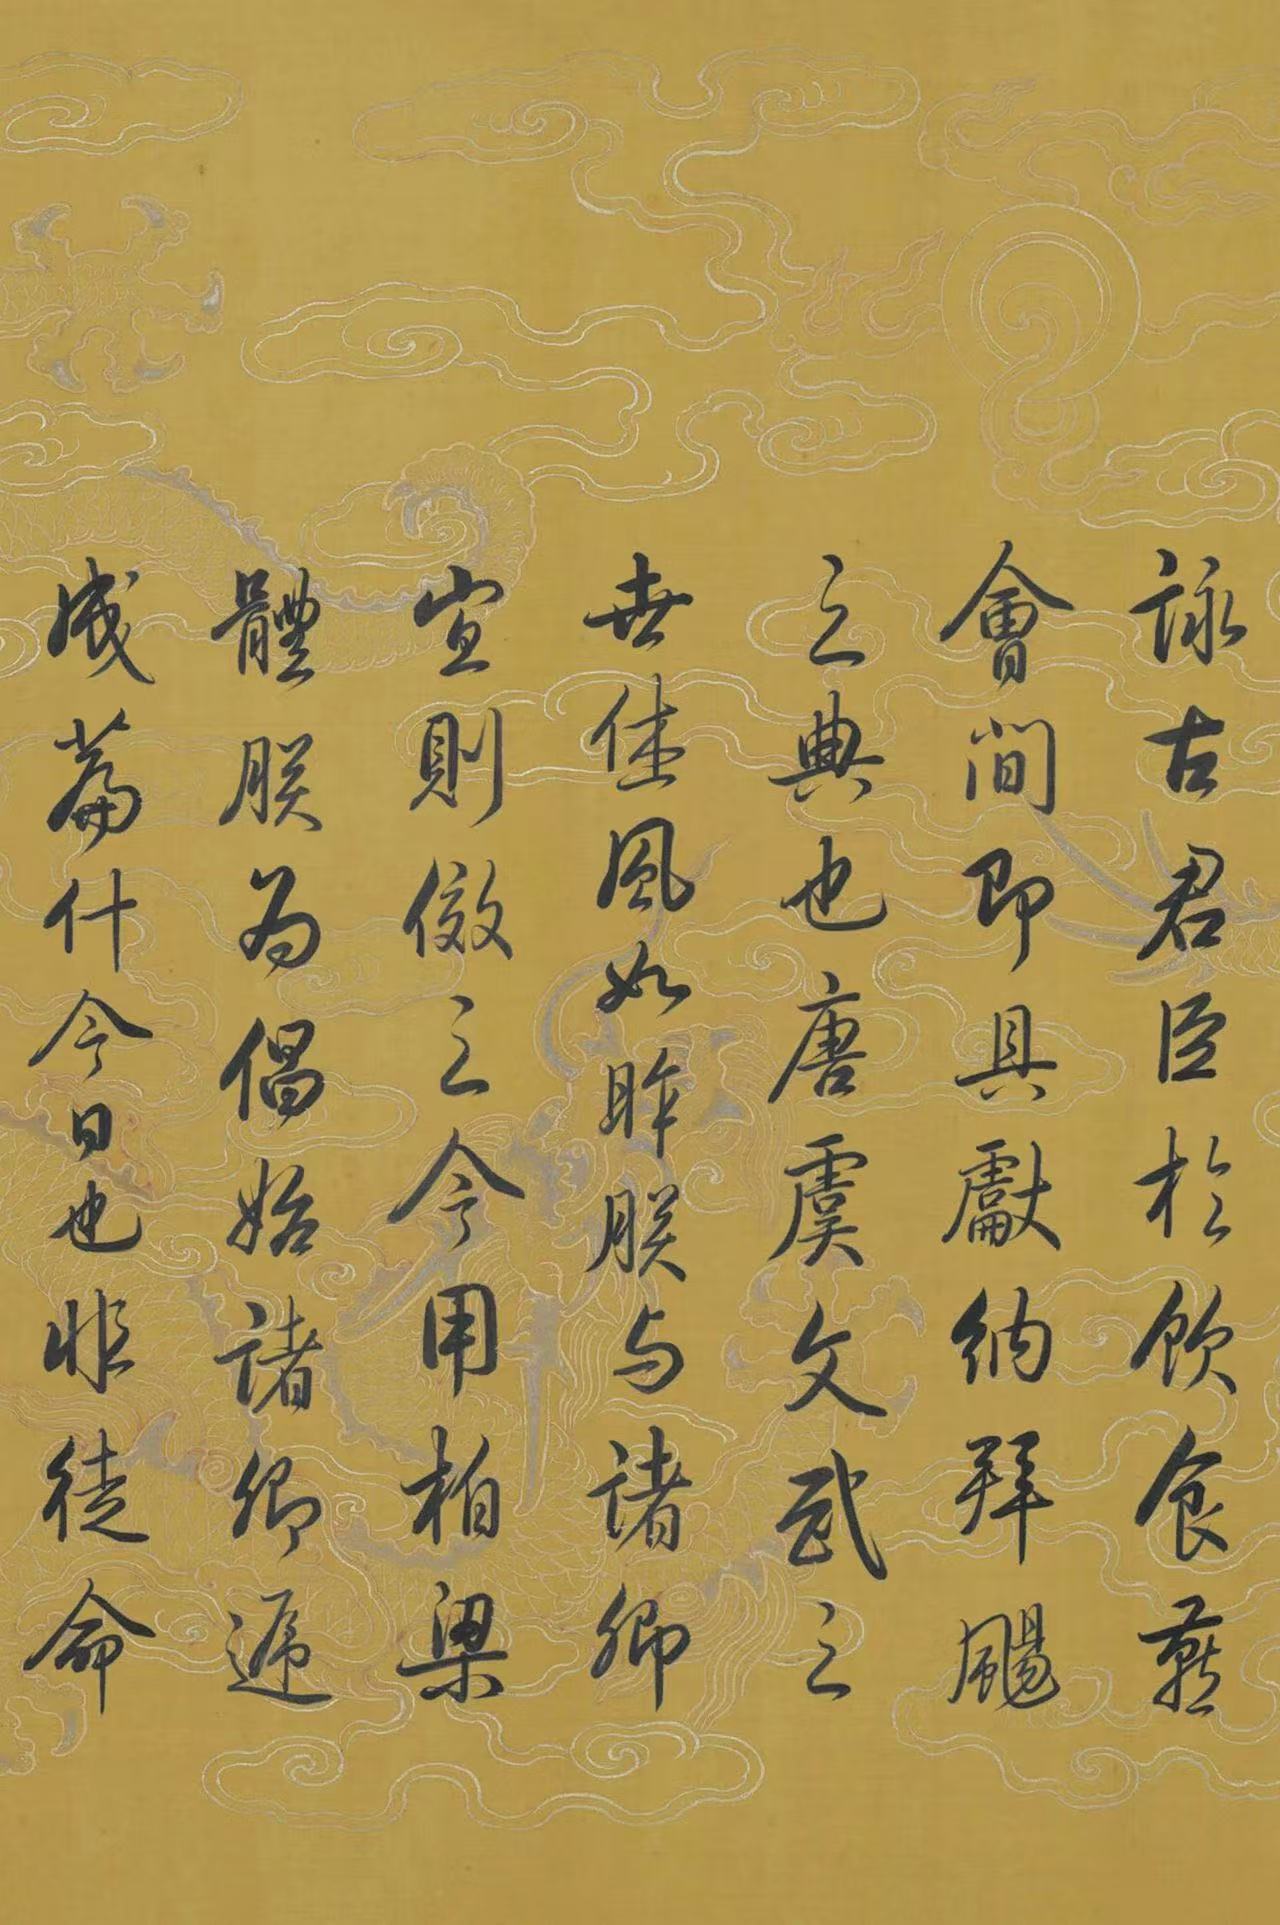 詠古君臣於飲食燕
會間即具獻納拜颺
之典也唐虞文武之
世佳風如眸朕与諸卿
宜則傚之今用柏梁
體朕为倡始諸卿遞
成篇什今日也非徒命